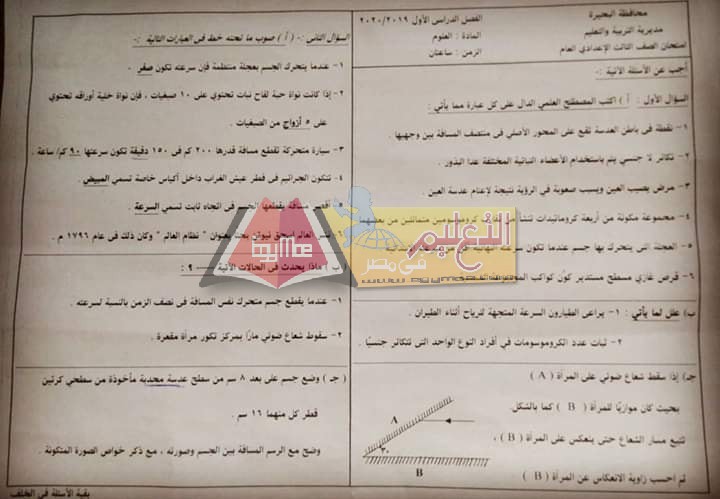 محافظة البحيرة
مديرية التربية والتعليم
امتحان الصف الثالث الإعدادي العام
الفصل الدراسى الأول ٢٠٢٠/٢٠١٩
المادة : العلوم
الزمن : ساعتان
أجب عن الأسئلة الآتية :-
السؤال الأول : أ ) اكتب المصطلح العلمي الدال على كل عبارة مما يأتي :
١- نقطة فى باطن العدسة تقع على المحور الأصلي فى منتصف المسافة بين وجهيها .
٢- تكاثر لا جنسي يتم باستخدام الأعضاء النباتية المختلفة عدا البذور .
٣- مرض يصيب العين ويسبب صعوبة في الرؤية نتيجة لإعتام عدسة العين .
٤- مجموعة مكونة من أربعة كروماتيدات تنشأ من تقارب كروموسومين متماثلين من بعضهما
٥- العجلة التى يتحرك بها جسم عندما تكون سرعته النهائية
٦- قرص غازي مسطح مستدير كون كواكب المجموعة
ب) علل لما يأتي : ١- يراعى الطيارون السرعة المتجهة للرياح أثناء الطيران .
٢- ثبات عدد الكروموسومات في أفراد النوع الواحد التى تتكاثر جنسيًا .
جـ) إذا سقط شعاع ضوئي على المرآة ( A )
بحيث كان موازيًا للمرآة ( B ) كما بالشكل.
تتبع مسار الشعاع حتى ينعكس على المرآة ( B ) ،
ثم احسب زاوية الانعكاس عن المرآة ( B )
A
٣٠
B
السؤال الثانى :- ( أ ) صوب ما تحته خط فى العبارات التالية :-
١- عندما يتحرك الجسم بعجلة منتظمة فإن سرعته تكون صفر .
٢- إذا كانت نواة حبة لقاح نبات تحتوي على ١٠ صبغيات ، فإن نواة خلية أوراقه تحتوي
على ٥ أزواج من الصبغيات .
٣- سيارة متحركة تقطع مسافة قدرها ٢٠٠ كم فى ١٥٠ دقيقة تكون سرعتها ٩٠ كم/ ساعة .
٤- تتكون الجراثيم فى فطر عيش الغراب داخل أكياس خاصة تسمي المبيض .
٥- أقصر مسافة يقطعها الجسم فى اتجاه ثابت تسمي السرعة .
٦- نشر العالم إسحق نيوتن بحث بعنوان " نظام العالم " وكان ذلك فى عام ١٧٩٦ م .
( ب ) ماذا يحدث فى الحالات الآتية ---- ؟ :-
١- عندما يقطع جسم متحرك نفس المسافة فى نصف الزمن بالنسبة لسرعته .
٢- سقوط شعاع ضوئي مارًا بمركز تكور مرآة مقعرة .
( جـ ) وضع جسم على بعد ٨ سم من سطح عدسة محدبة مأخوذة من سطحي كرتين
قطر كل منهما ١٦ سم .
وضح مع الرسم المسافة بين الجسم وصورته ، مع ذكر خواص الصورة المتكونة .
بقية الأسئلة فى الخلف
التعليم
فى مصر